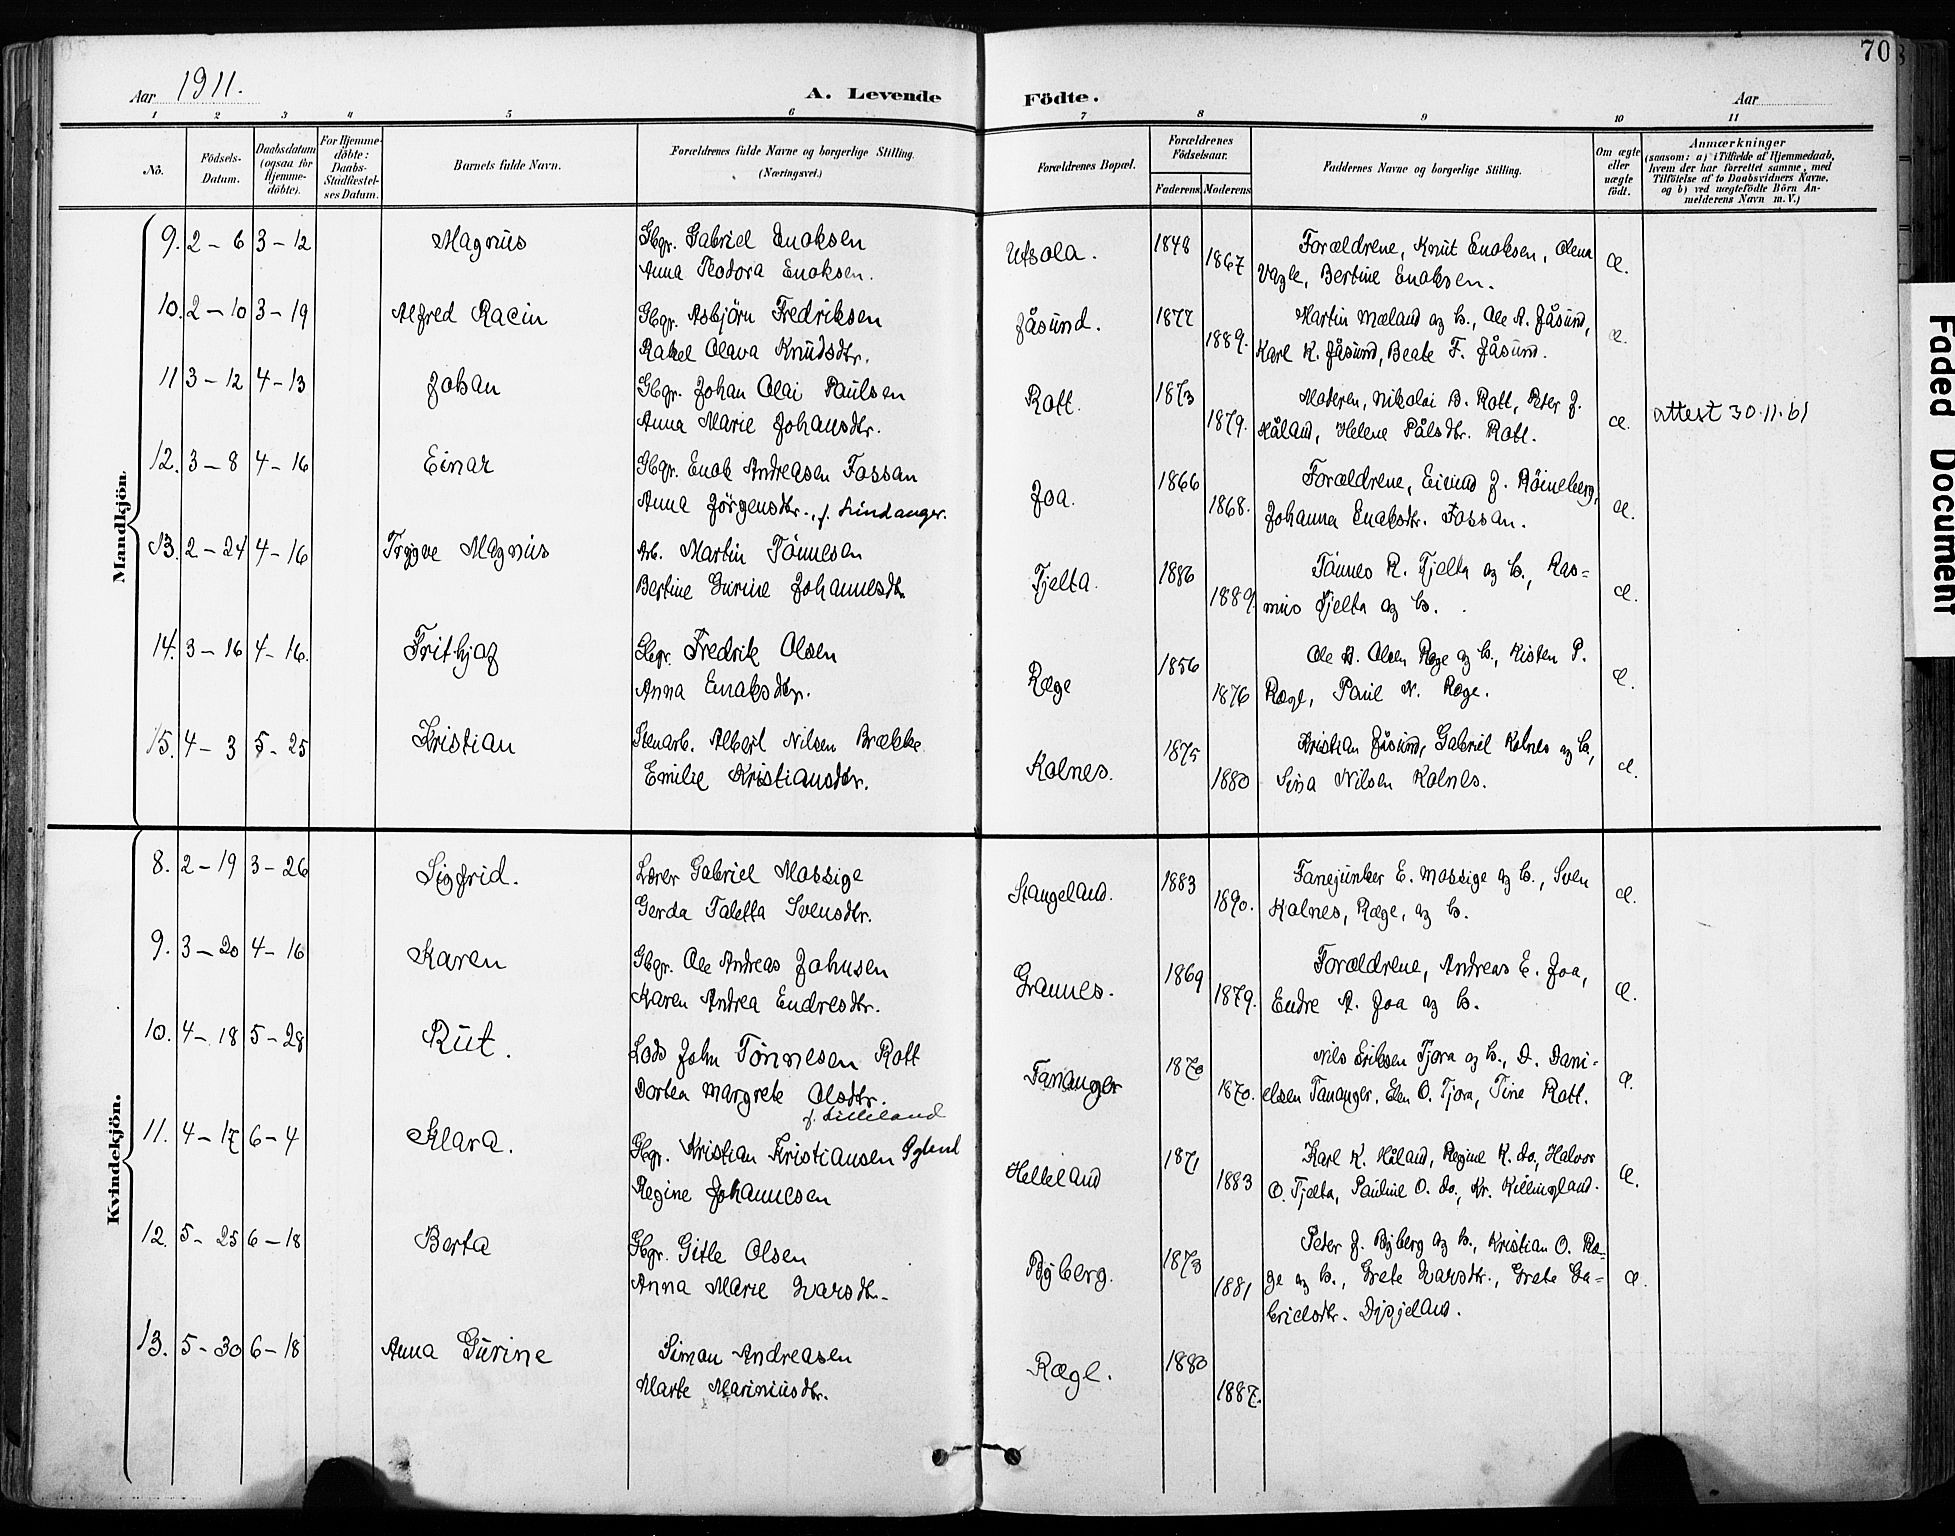 70
Aar 1911.
A. Levende Födte.
Aar
1 2 3 4 5 6 7 8 9 10 11
No.
Födsels-Datum.
Daabsdatum (ogsaa for Hjemmedöbte).
For Hjemmedöbte: Daabs-Stadfæstelses Datum.
Barnets fulde Navn.
Forældrenes fulde Navne og borgerlige Stilling. (Næringsvei.)
Forældrenes Bopæl.
Forældrenes Födselsaar.
Faderens. Moderens.
Faddernes Navne og borgerlige Stilling.
Om ægte eller uægte födt.
Anmærkninger
(saasom: a) i Tilfælde af Hjemmedaab, hvem der har forrettet samme, med Tilföielse af to Daabsvidners Navne. og b) ved uægtefödte Börn Anmelderens Navn m. V.)
Mandkjön.
9. 2-6 3-12 Magnus Gbgr. Gabriel Enoksen Ufsola. 1848 Forældrene, Knut Enoksen, Olena Æ.
Anna Teodora Enoksen. 1867 Vagle, Bertine Enoksen.
10. 2-10 3-19 Alfred Racin Gbgr. Asbjörn Fredriksen Jåsund. 1877 Martin Mæland og h., Ole A. Jåsund, Æ.
Rakel Olava Knudsdtr. 1889. Karl K. Jåsund, Beate F. Jåsund.
11 3-12 4-13 Johan Gbgr. Johan Olai Paulsen Rott. 1873 Moderen, Nikolai B. Rott, Peter J. Æ. attest 30.11.61
Anna Marie Johansdtr. 1879. Håland, Helene Pålsdtr. Rott.
12. 3-8 4-16 Einar Gbgr. Enok Andreasen Fossan Joa. 1866 Forældrene, Eivind J. Röineberg, Æ.
Anna Jörgensdtr., f. Lindanger. 1868. Johanna Enoksdtr. Fossan.
13. 2-24 4-16 Trygve Magnus Arb. Martin Tönnesen Tjelta. 1886 Tönnes R. Tjelta og h., Ras= Æ.
Bertine Gurine Johannesdtr. 1889. mus Tjelta og h.
14. 3-16 4-16. Frithjof Gbgr. Fredrik Olsen Ræge 1856 Ole A. Olsen Ræge og h., Kisten P. Æ.
Anna Enoksdtr. 1876 Ræge, Paul N. Ræge.
15. 4-3 5-25 Kristian Stenarb. Albert Nilsen Brække Kolnes. 1875 Kristian Jåsund, Gabriel Kolnes og h., Æ.
Emilie Kristiansdtr. 1880 Sina Nilsen Kolnes.
Kvindekjön.
8. 2-19 3-26 Sigfrid. Lærer Gabriel Massige Stangeland. 1883 Fanejunker E. Massige og h., Sven Æ.
Gerda Taletta Svensdtr. 1890. Kolnes, Ræge, og h.
9. 3-20 4-16 Karen Gbgr. Ole Andreas Johnsen Grannes. 1869 Forældrene, Andreas E. Joa, Æ.
Karen Andrea Endresdtr. 1879. Endre A. Joa og h.
10. 4-18 5-28 Rut. Lods John Tönnesen Rott Tananger 1870 Nils Eriksen Tjora og h., D. Dani= Æ.
Dortea Margrete Olsdtr. 1870. elsen Tananger, Elen O. Tjora, Tine Rott.
f. Lilleland
11. 4-17 6-4 Klara. Gbgr. Kristian Kristiansen Helleland 1871 Karl K. Håland, Regine K. do., Halvor Æ.
Regine Johannesen 1883 O. Tjelta, Pauline O. do., Kr. Killingland.
12. 5-25 6-18 Berta Gbgr. Gitle Olsen Byberg. 1873 Peter J. Byberg og h., Kristian O. Ræ= Æ.
Anna Marie Ivarsdtr. 1881 ge og h., Grete Ivarsdtr., Grete Ga=
brielsdtr. Dysjeland.
13. 5-30 6-18 Anna Gurine Simon Andreasen Ræge. 1880
Marte Mariniusdtr. 1887.
Faded Document